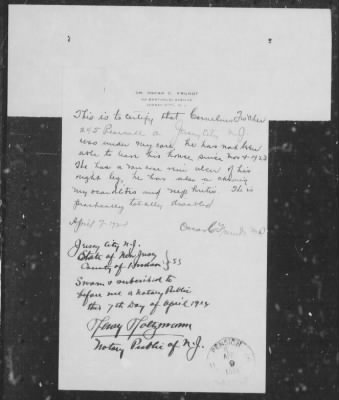 DR. OSCAR C. FRUNDT
JERSEY CITY, N. J.
This is to certify that Cornelius Fischer
295 a Jersey City N.J.
was under my care, he has not been
able to leave his house since Nov 4-1923
He has a varicose vein ulcer of his
right leg, he has also a chronic
myocarditis and nephritis. He is
practically totally disabled
April 7-1924
Oscar C Frundt M.D.
Jersey City N.J.
State of New Jersey
County of Hudson } SS
Sworn & subscribed to
before me a Notary Public
this 7th Day of April 1924
Henry Holtzmann
Notary Public of N.J.
PENSION
9